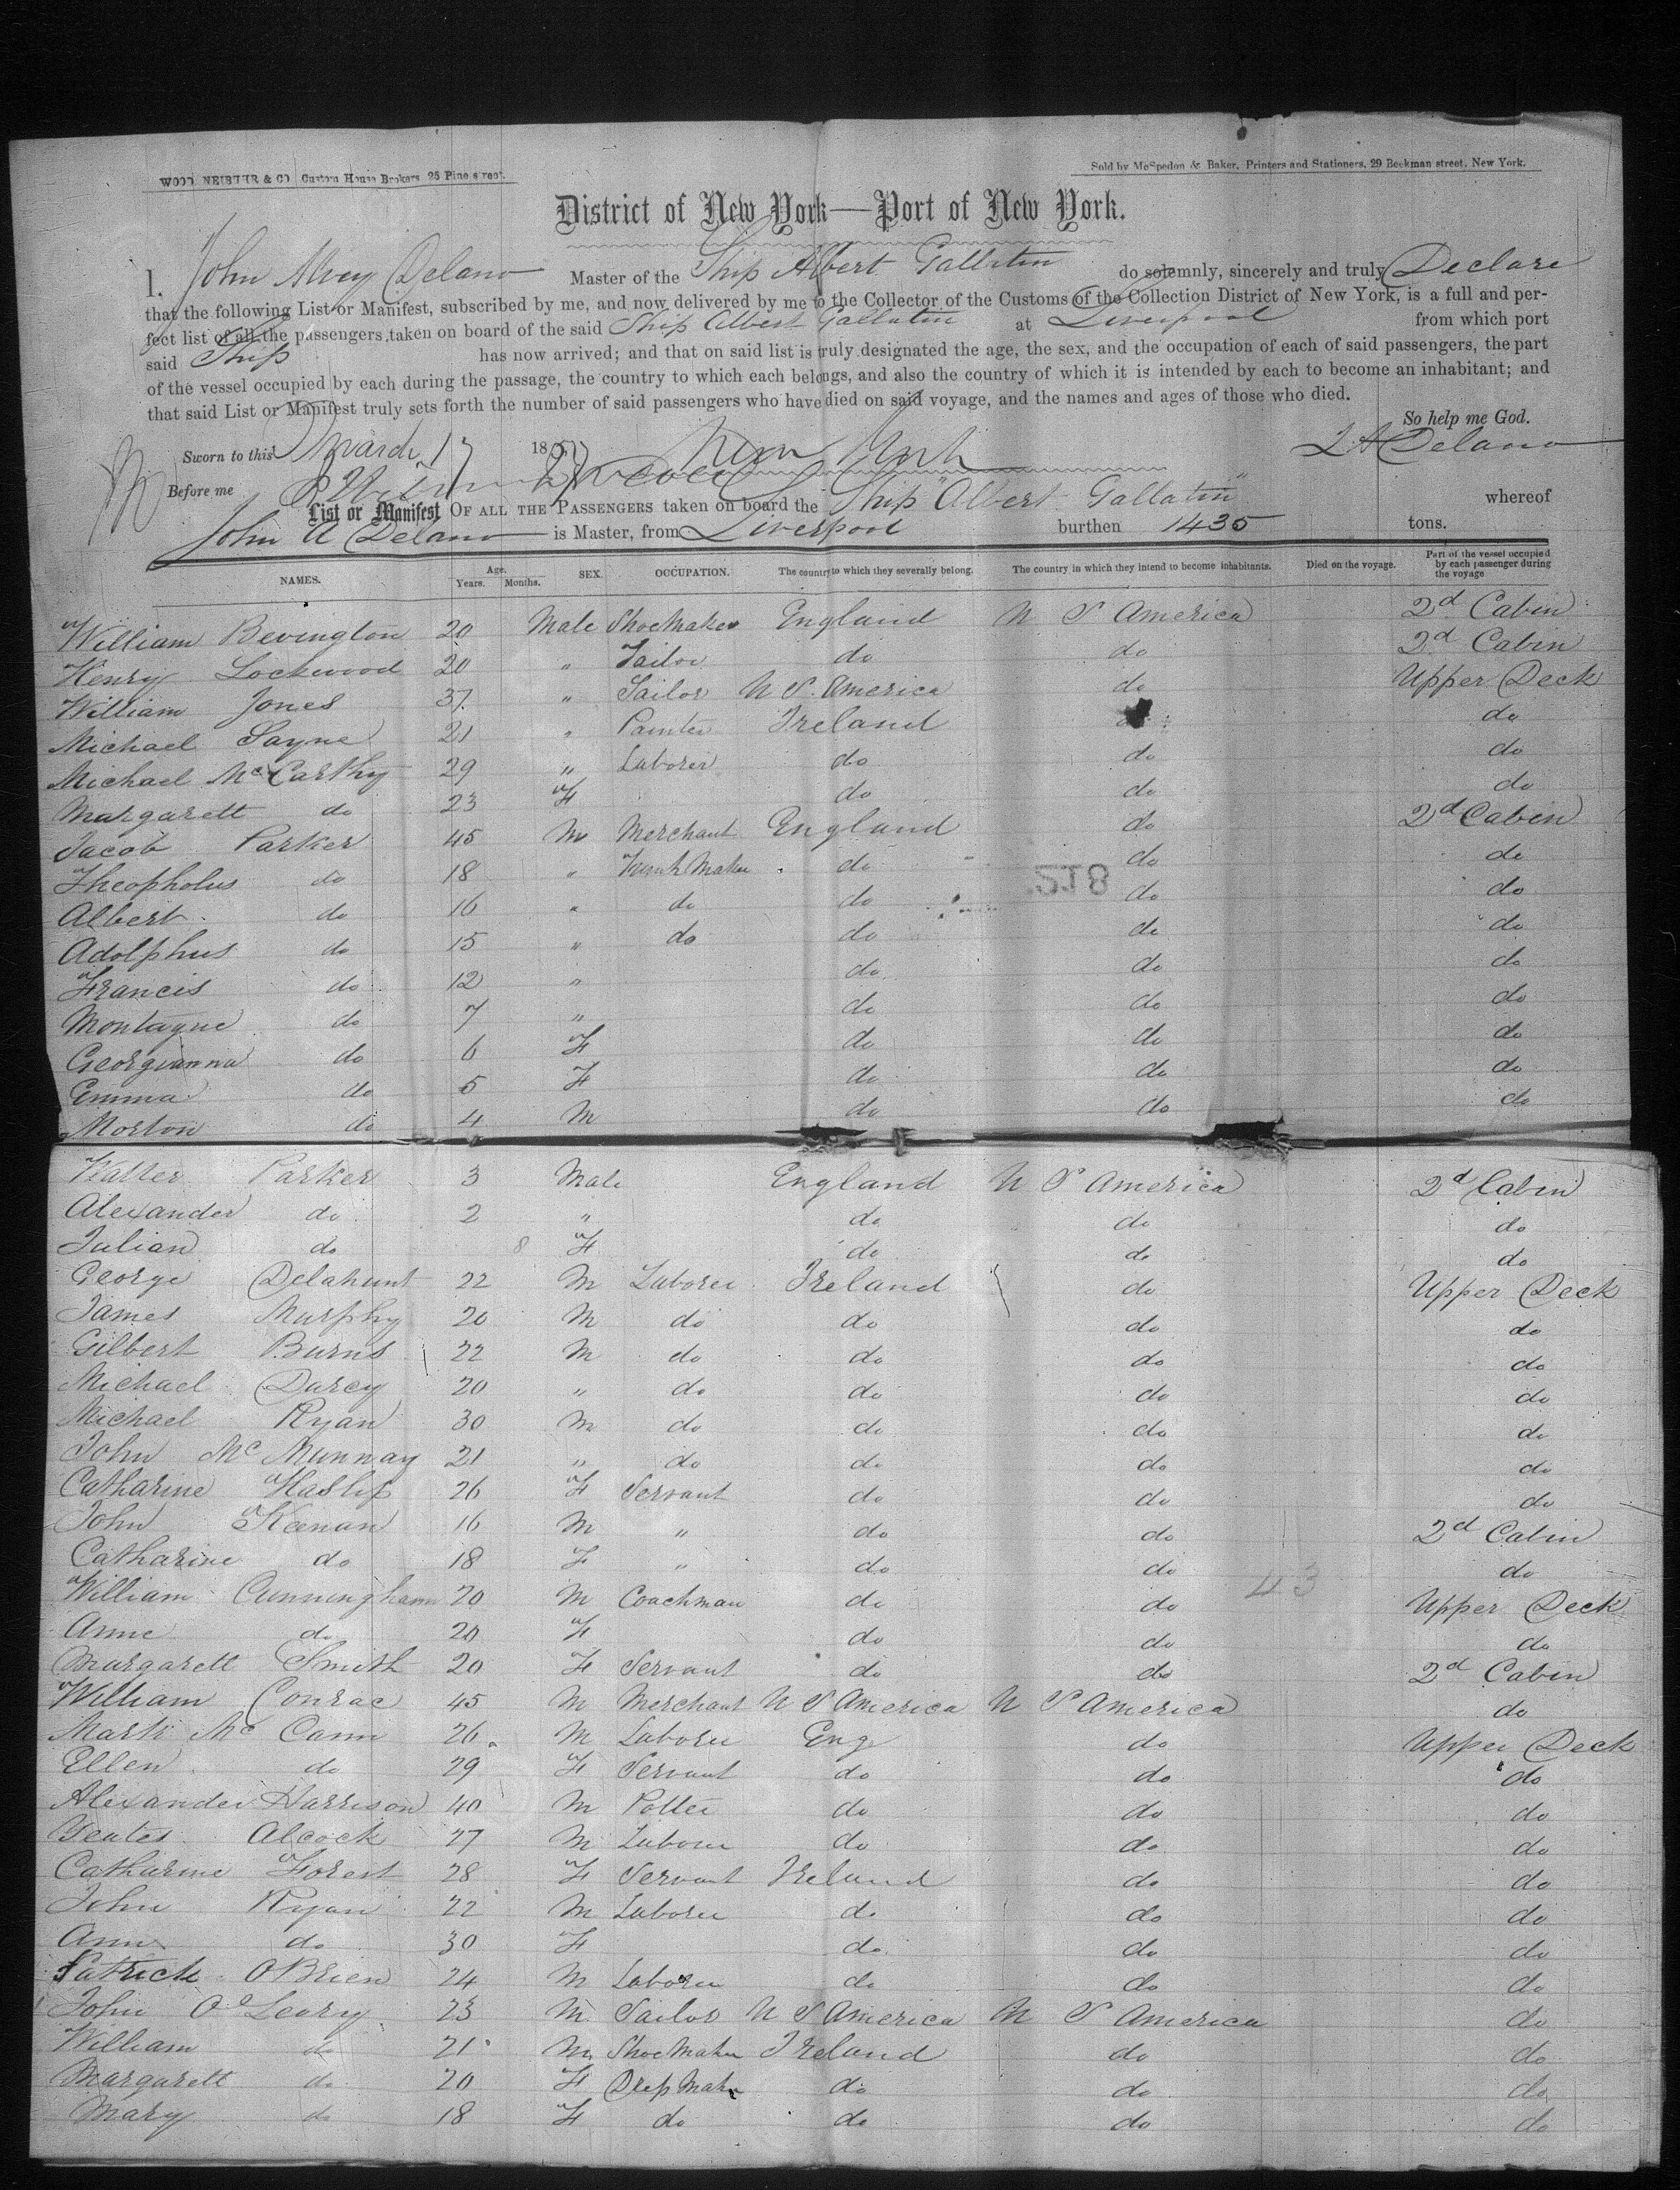 WOOD NEIBUHR & CO Custom House Brokers 26 Pine street.
Sold by McSpedon & Baker, Printers and Stationers, 29 Beekman street, New York.
District of New York—Port of New York.
I. John Alvey Delano Master of the Ship Albert Gallatin do solemnly, sincerely and truly Declare
that the following List or Manifest, subscribed by me, and now delivered by me to the Collector of the Customs of the Collection District of New York, is a full and per-
fect list of all the passengers taken on board of the said Ship Albert Gallatin at Liverpool from which port
said Ship has now arrived; and that on said list is truly designated the age, the sex, and the occupation of each of said passengers, the part
of the vessel occupied by each during the passage, the country to which each belongs, and also the country of which it is intended by each to become an inhabitant; and
that said List or Manifest truly sets forth the number of said passengers who have died on said voyage, and the names and ages of those who died.
So help me God.
Sworn to this March 17 185 New York J A Delano
Before me
List or Manifest OF ALL THE PASSENGERS taken on board the Ship "Albert Gallatin" whereof
John A Delano is Master, from Liverpool burthen 1435 tons.
NAMES. Age. Years. Months. SEX. OCCUPATION. The country to which they severally belong. The country in which they intend to become inhabitants. Died on the voyage. Part of the vessel occupied by each passenger during the voyage
William Bevington 20 Male Shoemaker England U S America 2d Cabin
Henry Lockwood 20 " Tailor do do 2d Cabin
William Jones 37 " Sailor U S. America do Upper Deck
Michael Sayne 21 " Painter Ireland do
Michael McCarthy 29 " Laborer do do do
Margarett do 23 F do do do
Jacob Parker 45 M Merchant England do 2d Cabin
Theopholus do 18 " Trunk Maker do do do
218
Albert do 16 " do do do do
Adolphus do 15 " do do do do
Francis do 12 " do do do
Montague do 7 " do do do
Georgianna do 6 F do do do
Emma do 5 F do do do
Morton do 4 M do do do
Walter Parker 3 Male England U S America 2d Cabin
Alexander do 2 " do do do
Julian do 8 F do do do
George Delahunt 22 M Laborer Ireland do Upper Deck
James Murphy 20 M do do do do
Gilbert Burns 22 M do do do do
Michael Darcy 20 " do do do do
Michael Ryan 30 M do do do do
John McMunnay 21 " do do do do
Catharine Haslip 26 F Servant do do do
John Keenan 16 M " do do 2d Cabin
Catharine do 18 F " do do do
43
William Cunningham 20 M Coachman do do Upper Deck
Anne do 20 F do do do
Margarett Smith 20 F Servant do do 2d Cabin
William Conrac 45 M Merchant U S America U S America do
Mark McCann 26 M Laborer Eng do Upper Deck
Ellen do 29 F Servant do do do
Alexander Harrison 40 M Potter do do do
Yeates Alcock 27 M Laborer do do do
Catharine Forest 28 F Servant Ireland do do
John Ryan 22 M Laborer do do do
Ann do 30 F do do do
Patrick OBrien 24 M Laborer do do do
John O'Leary 23 M Sailor U S America U S America do
William do 21 M Shoe Maker Ireland do do
Margarett do 20 F Dress Maker do do do
Mary do 18 F do do do do